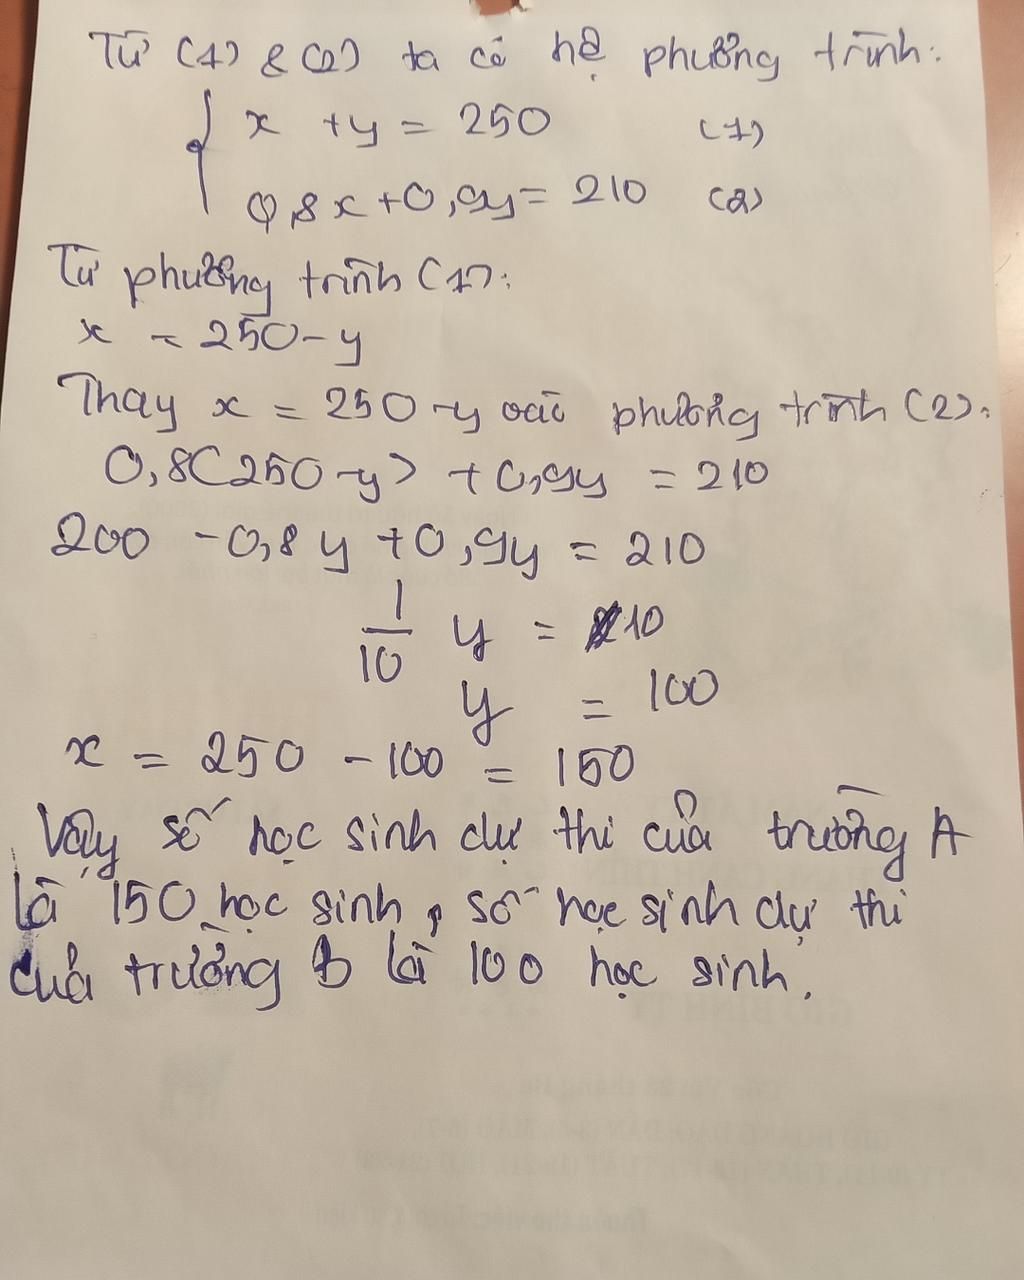 Từ (1) & (2) ta có hệ phương trình:
x + y = 250 (1)
0,8x + 0,9y = 210 (2)
Từ phương trình (1):
x = 250 - y
Thay x = 250 - y vào phương trình (2):
0,8(250 - y) + 0,9y = 210
200 - 0,8y + 0,9y = 210
1/10 y = 10
y = 100
x = 250 - 100 = 150
Vậy số học sinh dự thi của trường A
là 150 học sinh, số học sinh dự thi
của trường B là 100 học sinh.